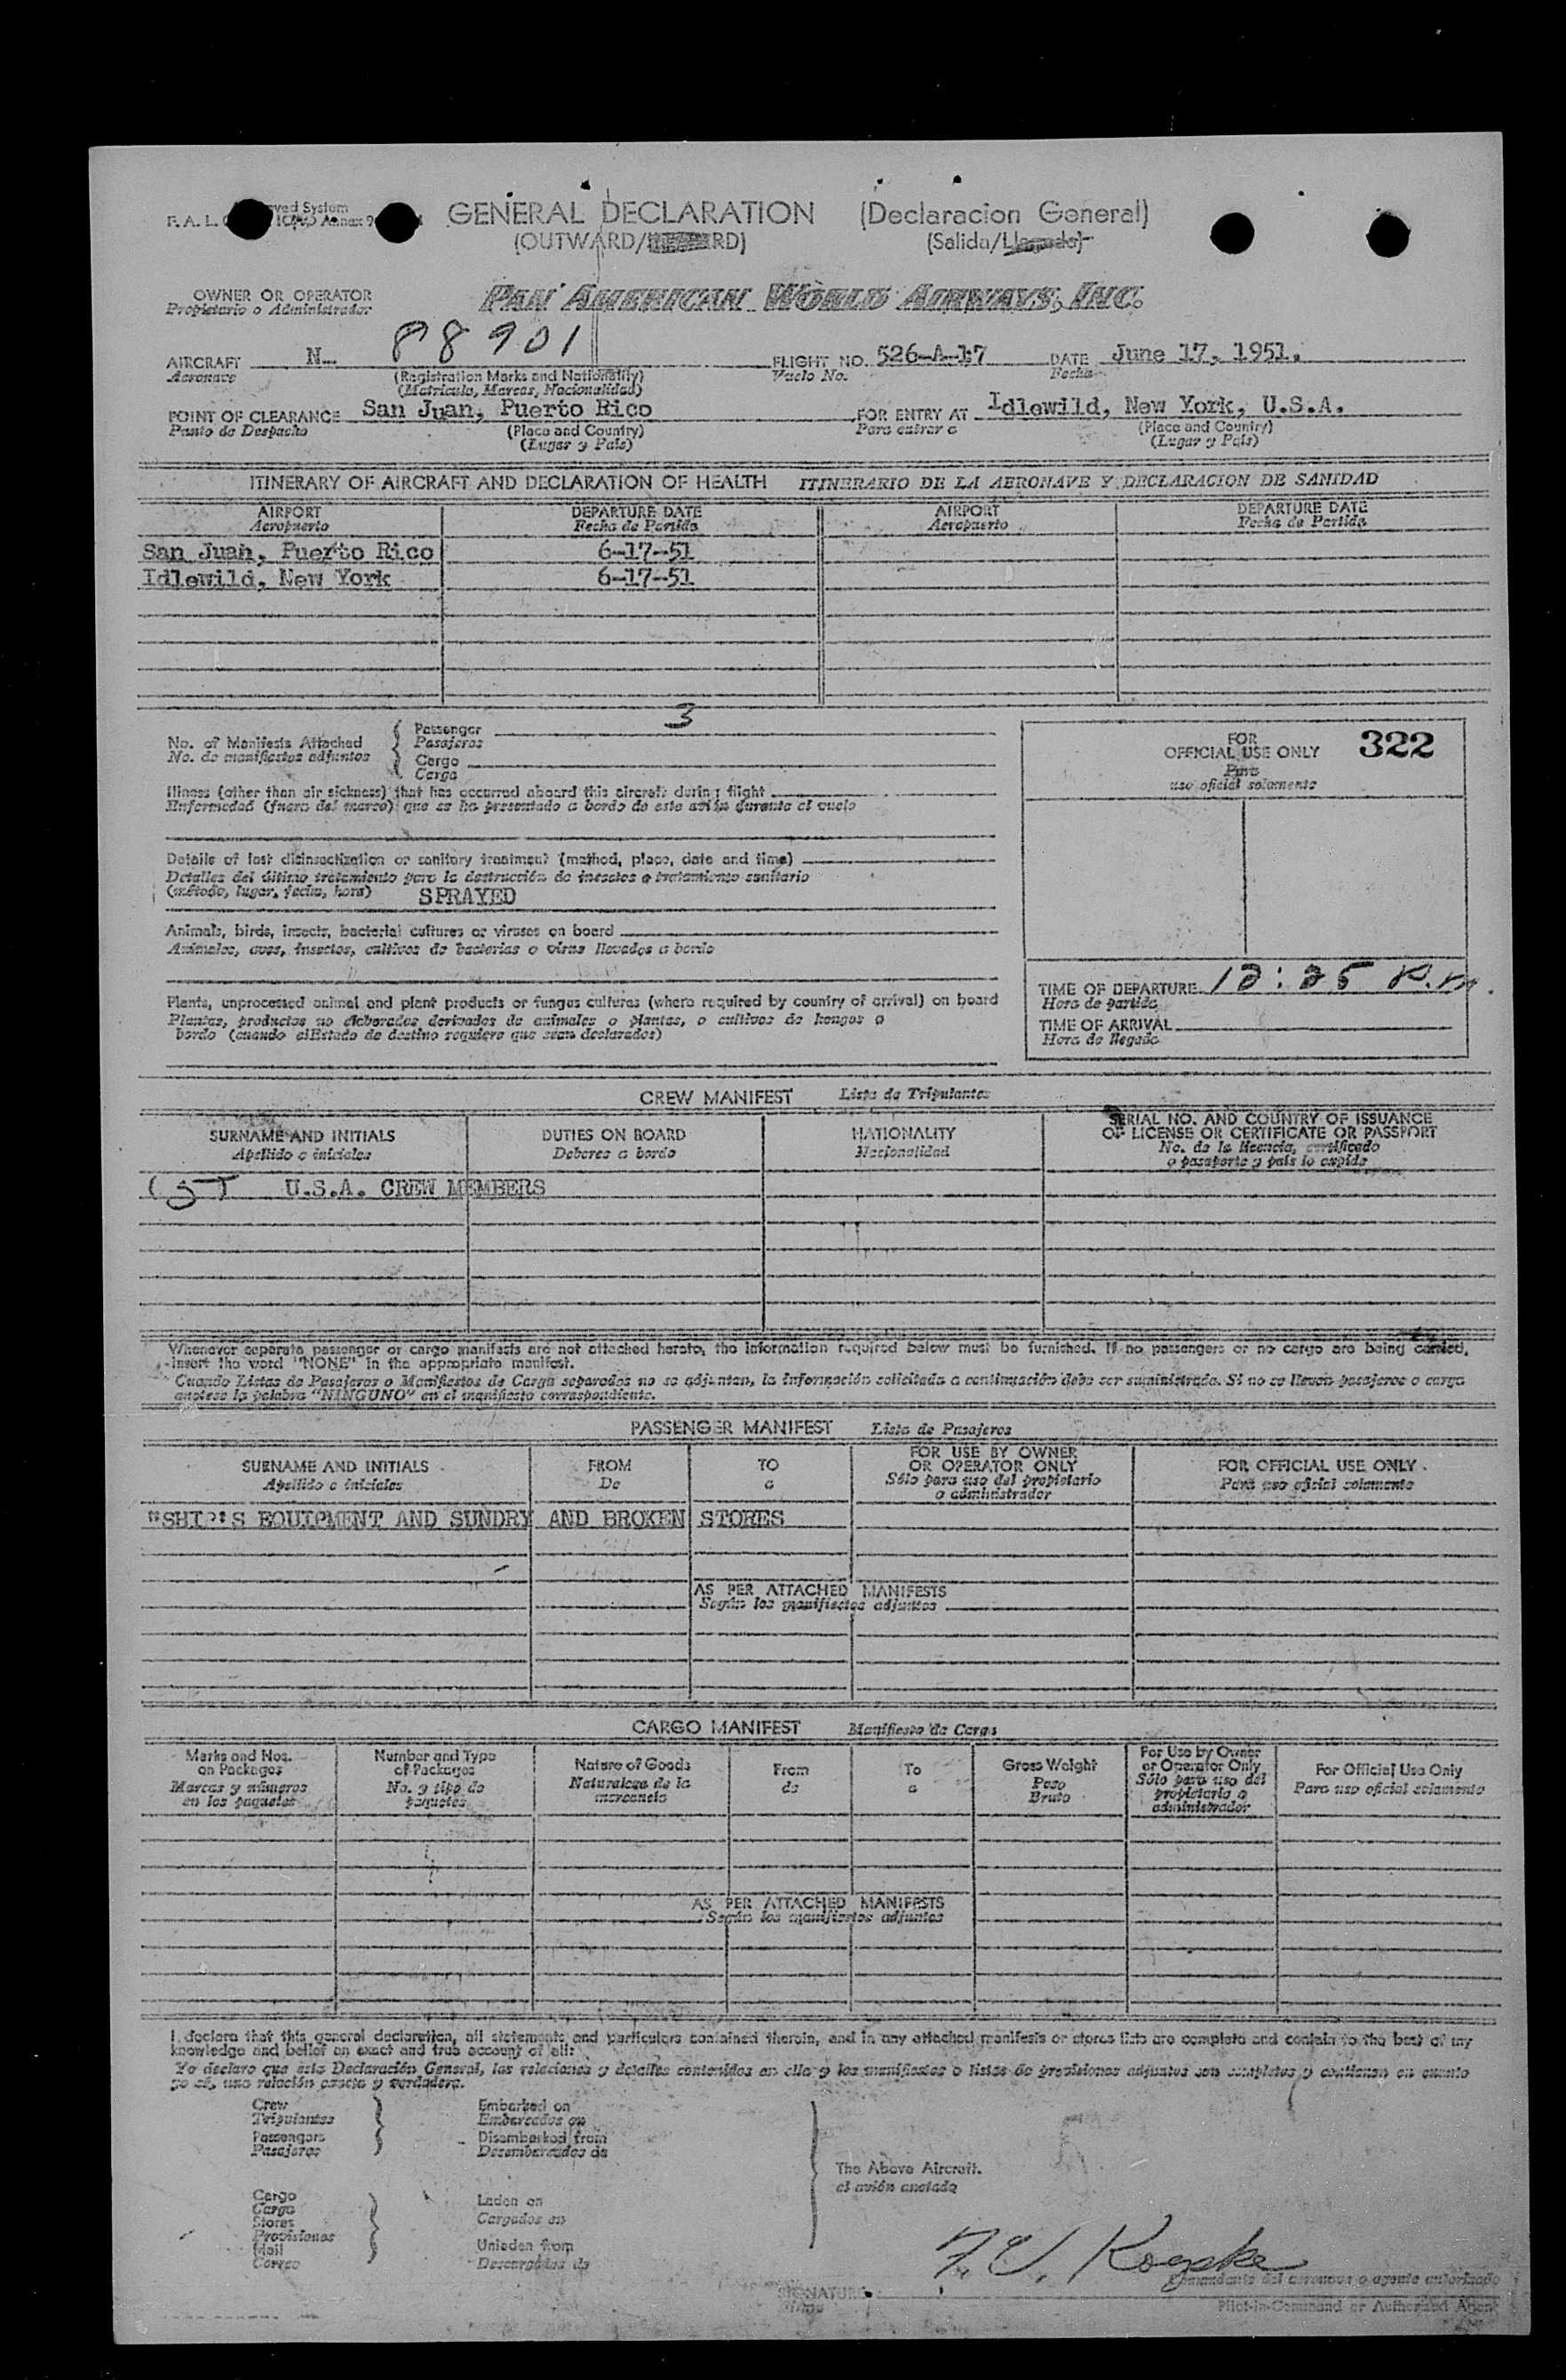 GENERAL DECLARATION (Declaracion General)
(OUTWARD/ RD) (Salida/Llegada)
OWNER OR OPERATOR PAN AMERICAN WORLD AIRWAYS, INC.
Propietario o Administrador
AIRCRAFT N- 88901 FLIGHT NO. 526-A-17 DATE June 17, 1951.
Aeronave (Registration Marks and Nationality) Vuelo No. Fecha
(Matricula, Marcas, Nacionalidad)
POINT OF CLEARANCE San Juan, Puerto Rico FOR ENTRY AT Idlewild, New York, U.S.A.
Punto de Despacho (Place and Country) Para entrar a (Place and Country)
(Lugar y País) (Lugar y País)
ITINERARY OF AIRCRAFT AND DECLARATION OF HEALTH ITINERARIO DE LA AERONAVE Y DECLARACION DE SANIDAD
AIRPORT DEPARTURE DATE AIRPORT DEPARTURE DATE
Aeropuerto Fecha de Partida Aeropuerto Fecha de Partida
San Juan, Puerto Rico 6-17-51
Idlewild, New York 6-17-51
No. of Manifests Attached Passenger 3
No. de manifiestos adjuntos Pasajeros
Cargo
Carga
FOR
OFFICIAL USE ONLY 322
Para
uso oficial solamente
Illness (other than air sickness) that has occurred aboard this aircraft during flight
Enfermedad (fuera del mareo) que se ha presentado a bordo de este avión durante el vuelo
Details of last disinsectization or sanitary treatment (method, place, date and time)
Detalles del último tratamiento para la destrucción de insectos o tratamiento sanitario
(método, lugar, fecha, hora) SPRAYED
Animals, birds, insects, bacterial cultures or viruses on board
Animales, aves, insectos, cultivos de bacterias o virus llevados a bordo
Plants, unprocessed animal and plant products or fungus cultures (where required by country of arrival) on board
Plantas, productos no elaborados derivados de animales o plantas, o cultivos de hongos a
bordo (cuando el Estado de destino requiere que sean declarados)
TIME OF DEPARTURE 12:25 P.M.
Hora de partida
TIME OF ARRIVAL
Hora de llegada
CREW MANIFEST Lista de Tripulantes
SURNAME AND INITIALS DUTIES ON BOARD NATIONALITY SERIAL NO. AND COUNTRY OF ISSUANCE
OF LICENSE OR CERTIFICATE OR PASSPORT
Apellido e iniciales Deberes a bordo Nacionalidad No. de la licencia, certificado
o pasaporte y país lo expide
(5) U.S.A. CREW MEMBERS
Whenever separate passenger or cargo manifests are not attached hereto, the information required below must be furnished. If no passengers or no cargo are being carried,
insert the word "NONE" in the appropriate manifest.
Cuando Listas de Pasajeros o Manifiestos de Carga separados no se adjuntan, la información solicitada a continuación debe ser suministrada. Si no se llevan pasajeros o carga
anotese la palabra "NINGUNO" en el manifiesto correspondiente.
PASSENGER MANIFEST Lista de Pasajeros
SURNAME AND INITIALS FROM TO FOR USE BY OWNER
OR OPERATOR ONLY FOR OFFICIAL USE ONLY
Apellido e iniciales De a Sólo para uso del propietario
o administrador Para uso oficial solamente
"SHIP'S EQUIPMENT AND SUNDRY AND BROKEN STORES
AS PER ATTACHED MANIFESTS
Según los manifiestos adjuntos
CARGO MANIFEST Manifiesto de Carga
Marks and Nos.
on Packages
Marcas y números
en los paquetes
Number and Type
of Packages
No. y tipo de
paquetes
Nature of Goods
Naturaleza de la
mercancia
From
de
To
a
Gross Weight
Peso
Bruto
For Use by Owner
or Operator Only
Sólo para uso del
propietario o
administrador
For Official Use Only
Para uso oficial solamente
AS PER ATTACHED MANIFESTS
Según los manifiestos adjuntos
I declare that this general declaration, all statements and particulars contained therein, and in any attached manifests or stores lists are complete and contain to the best of my
knowledge and belief an exact and true account of all:
Yo declaro que esta Declaración General, las relaciones y detalles contenidos en ella y los manifiestos o listas de provisiones adjuntos son completos y contienen en cuanto
yo sé, una relación exacta y verdadera.
Crew Embarked on
Tripulantes Embarcados en
Passengers Disembarked from
Pasajeros Desembarcados de
The Above Aircraft.
el avión anotado
Cargo
Carga Laden on
Stores Cargados en
Provisiones
Mail Unladen from
Correo Descargados de
F. W. Koepke
Comandante del aeronave o agente autorizado
SIGNATURE
Firma Pilot-in-Command or Authorized Agent